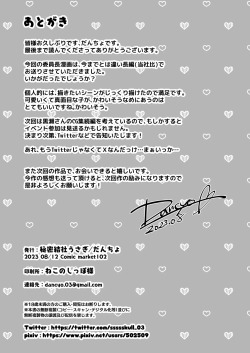 あとがき
皆様お久しぶりです、だんちょです。
最後まで読んでくださってありがとうございます。
今回の委員長漫画は、今までとは違い長編(当社比)で
お送りさせていただきました。
いかがだったでしょうか？
個人的には、描きたいシーンがじっくり描けたので満足です。
可愛くて真面目な子が、かわいそうなめにあうのは
とてもいいですね。かわいそうですが。
次回は黒瀬さんのCG集続編を考えているので、もしかすると
イベント参加は見送るかもしれません。
決まり次第、Twitterなどで告知いたします！
あれ、もうTwitterじゃなくてXなんだっけ…まぁいっか…
また次回の作品で、お会いできると嬉しいです。
今作の感想も送って頂けると、次回作の励みになりますので
是非よろしくお願いします！
Dancyo
2023.08
発行：秘密結社うさぎ/だんちょ
2023 08/12 Comic market102
印刷所：ねこのしっぽ様
連絡先：dancuo.03@gmail.com
※18歳未満の方のご購入・閲覧はお断りします。
Twitter : https://twitter.com/ssssskull_03
pixiv : https://www.pixiv.net/users/502509